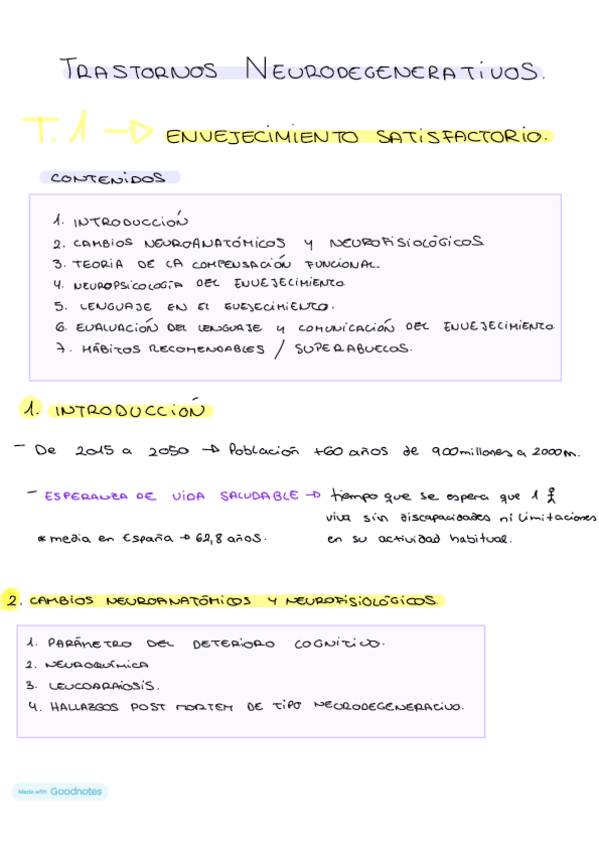 TRASTORNOS NEURODEGENERATIVOS.
T.1 → ENVEJECIMIENTO SATISFACTORIO.
CONTENIDOS
1. INTRODUCCIÓN
2. CAMBIOS NEUROANATÓMICOS Y NEUROFISIOLÓGICOS
3. TEORIA DE LA COMPENSACIÓN FUNCIONAL.
4. NEUROPSICOLOGÍA DEL ENVEJECIMIENTO.
5. LENGUAJE EN EL EVEJECIMIENTO.
6. EVALUACIÓN DEL LENGUAJE Y COMUNICACIÓN DEL ENVEJECIMIENTO.
7. HÁBITOS RECOMENDABLES / SUPERABUELOS.
1. INTRODUCCIÓN
- De 2015 a 2050 → Población +60 años de 900 millones a 2000m.
- ESPERANZA DE VIDA SALUDABLE → tiempo que se espera que 1
viva sin discapacidades ni limitaciones
* media en España → 62,8 años. en su actividad habitual.
2. CAMBIOS NEUROANATÓMICOS Y NEUROFISIOLÓGICOS.
1. PARÁMETRO DEL DETERIORO COGNITIVO.
2. NEUROQUÍMICA
3. LEUCOARAIOSIS.
4. HALLAZGOS POST MORTEM DE TIPO NEURODEGENERATIVO.
Made with Goodnotes